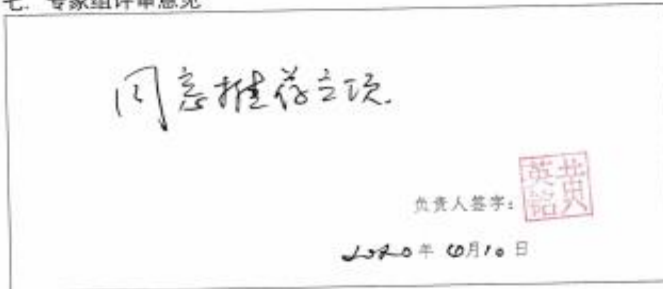 七. 专家组评审意见
同意推荐立项.
负责人签字:
黄英铭
2020年 6月10日